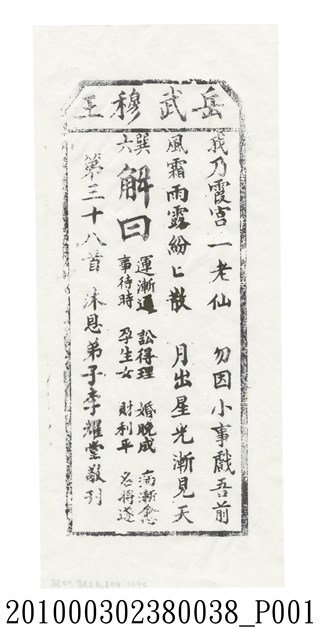 岳武穆王
我乃霞宮一老仙 勿因小事戲吾前
風霜雨露紛匕散 月出星光漸見天
巽六
解曰
運漸通 訟得理 婚晚成 病漸愈
事待時 孕生女 財利平 名將遂
第三十八首 沐恩弟子李耀堂敬刊
201000302380038_P001